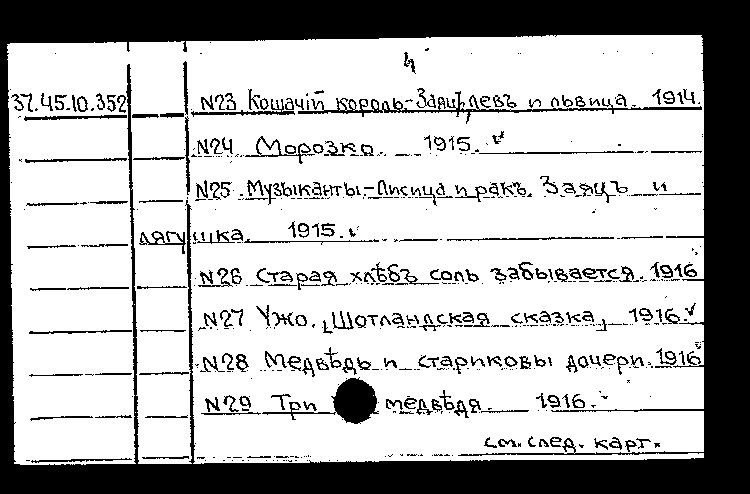 4
37.45.10.352 N23 Кошачiй король-Заяц, левъ и львица. 1914.
N24 Морозко. 1915. ✓
N25 Музыканты-Лисица и ракъ. Заяцъ и
лягушка. 1915. ✓
N26 Старая хлѣбъ соль забывается. 1916
N27 Ужо. [Шотландская сказка] 1916. ✓
N28 Медвѣдь и стариковы дочери. 1916
N29 Три медвѣдя. 1916.
см. след. карт.